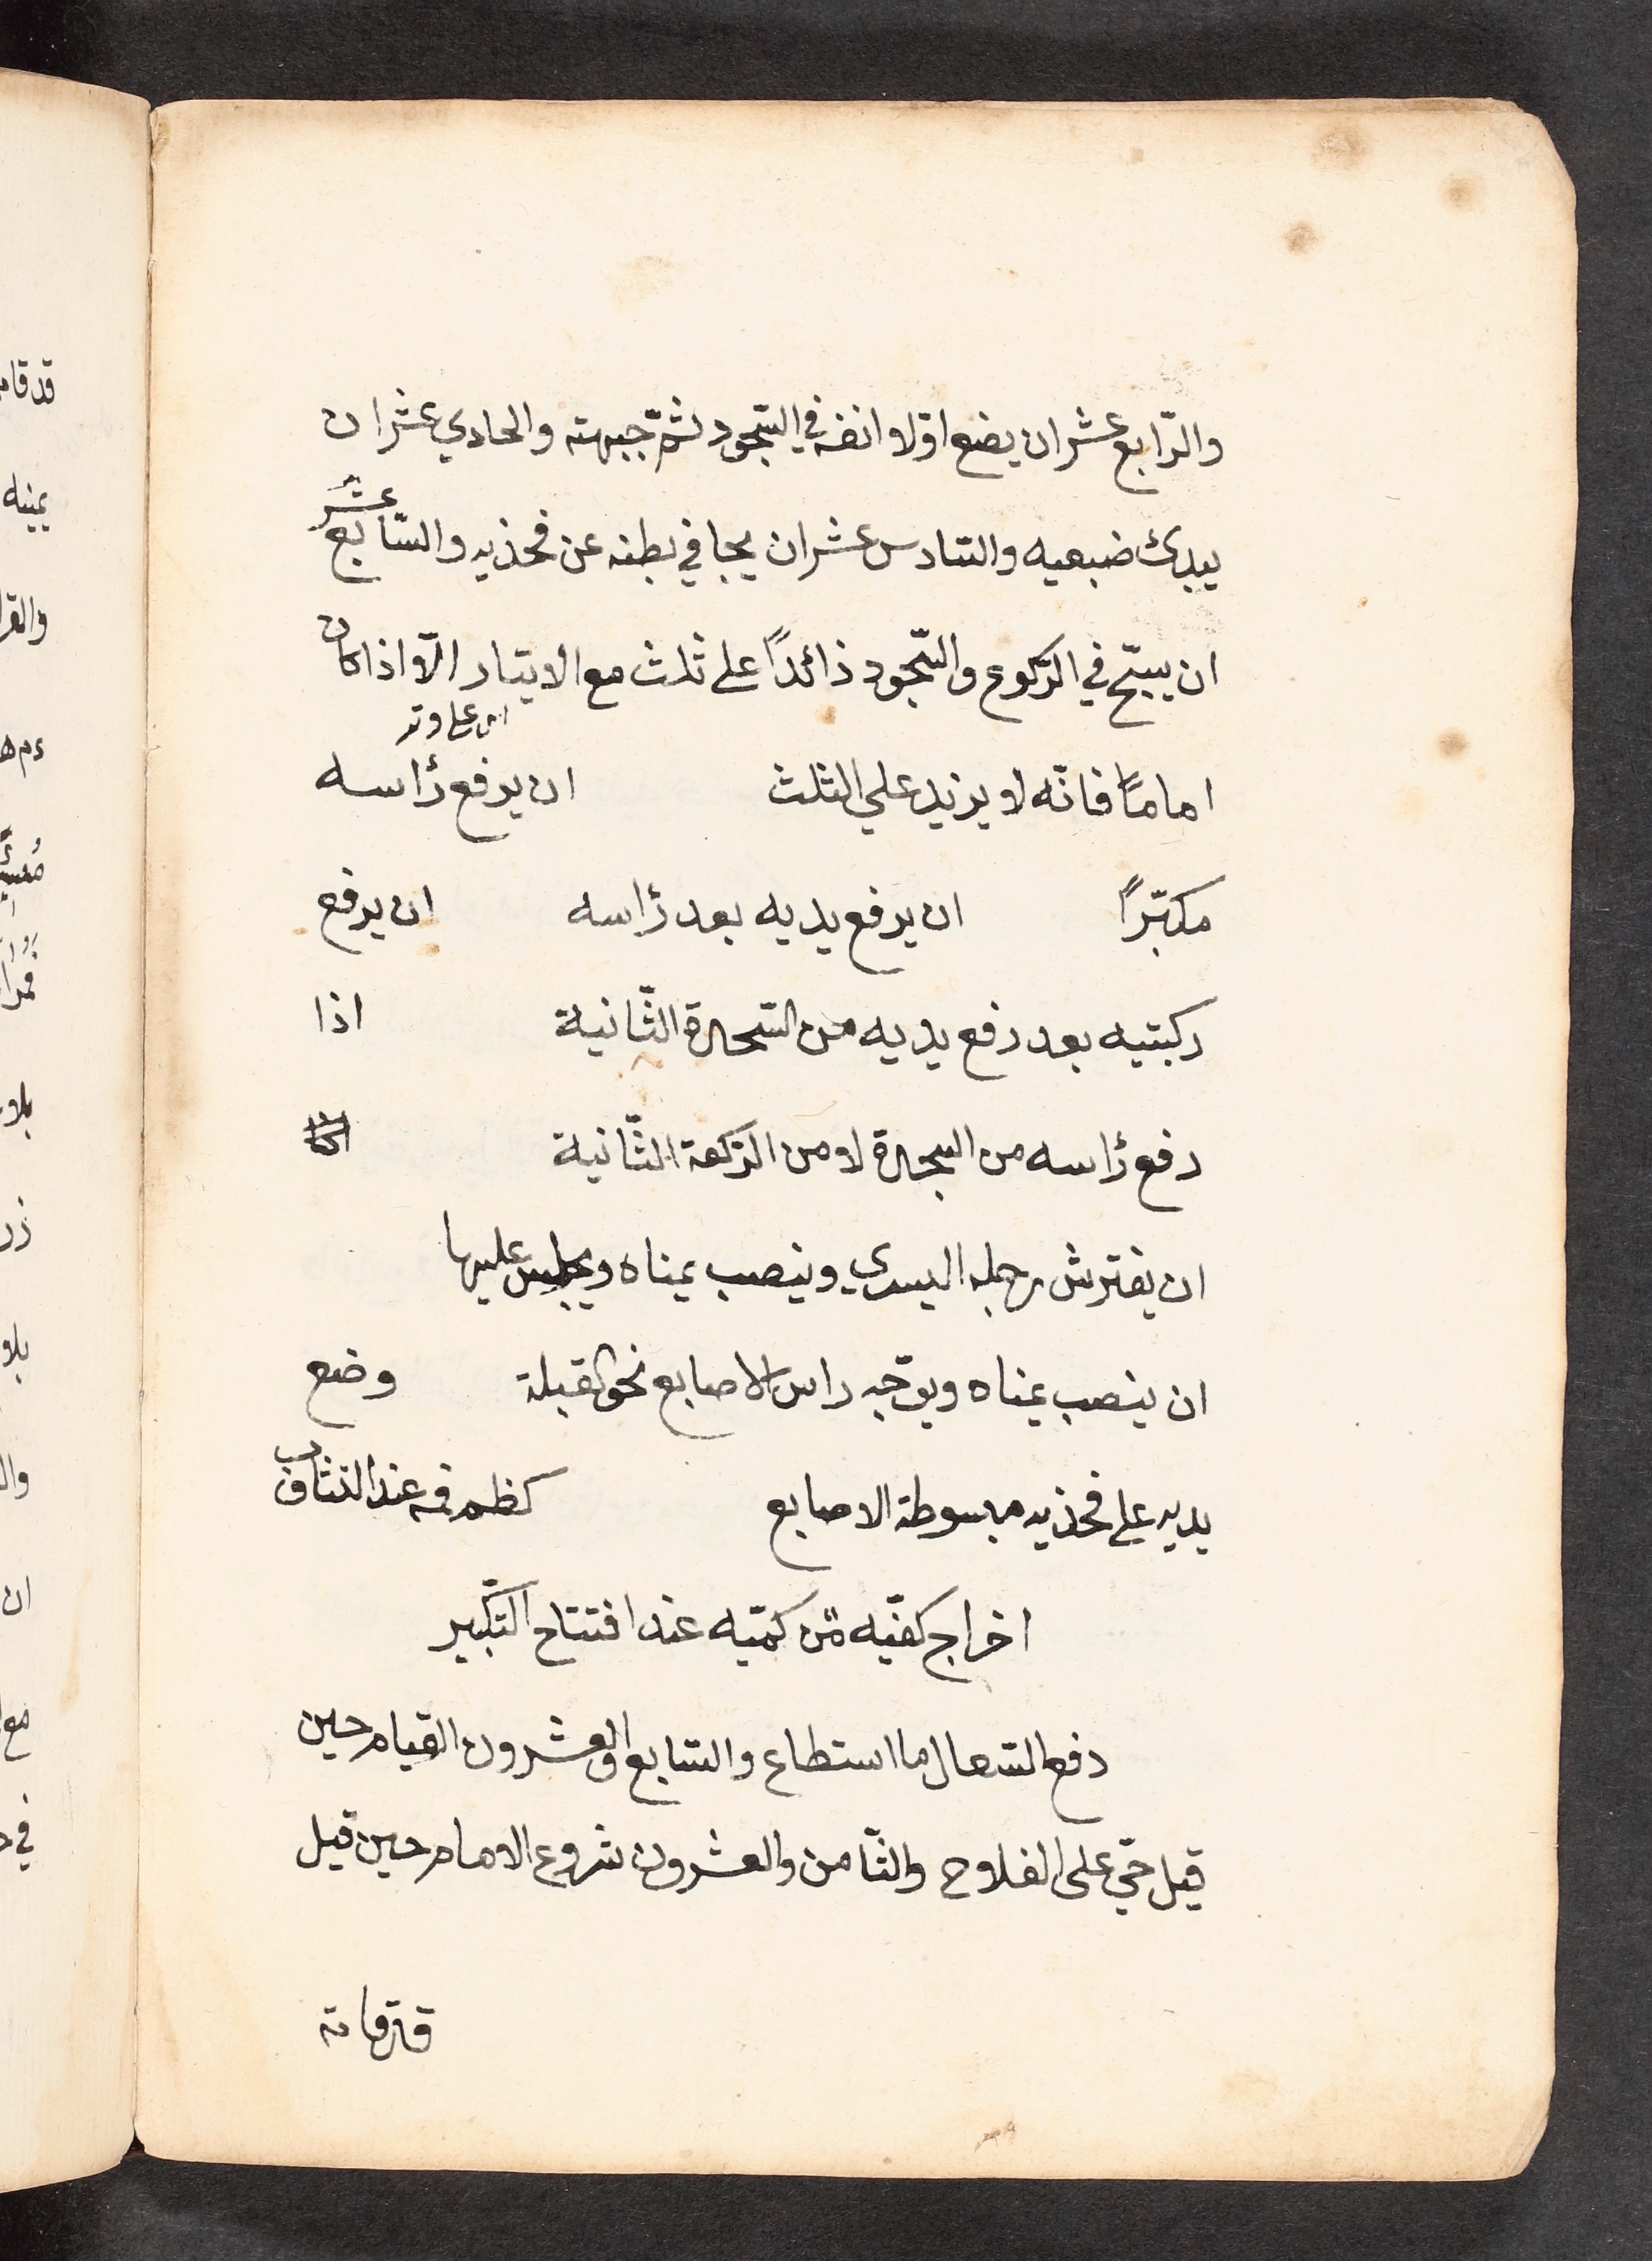 والرّابع عشر ان يضع اوّلا انفه في السّجود ثمّ جبهته والحادي عشر ان
يبدئ ضبعيه والسّادس عشر ان يجافي بطنه عن فخذيه والسّابع عشر
ان يسبّح في الرّكوع والسّجود ذائدًا على ثلث مع الايتار الّا اذا كان
اى على وتر
امامًا فانّه لا يزيد على الثلث ان يرفع رأسه
مكبّرًا ان يرفع يديه بعد رأسه ان يرفع
ركبتيه بعد رفع يديه من السّجدة الثّانية اذا
رفع رأسه من السجدة لا من الرّكعة الثّانية
ان يفترش رجله اليسرى وينصب يمناه ويجلس عليها
ان ينصب يمناه ويوجّه راس الاصابع نحو القبلة وضع
يديه على فخذيه مبسوطة الاصابع كظم فمه عند التثاؤب
اخراج كفّيه من كمّيه عند افتتاح التّكبير
دفع السّعال ما استطاع والسّابع والعشرون القيام حين
قيل حيّ على الفلاح والثّامن والعشرون شروع الامام حين قيل
قد قامة